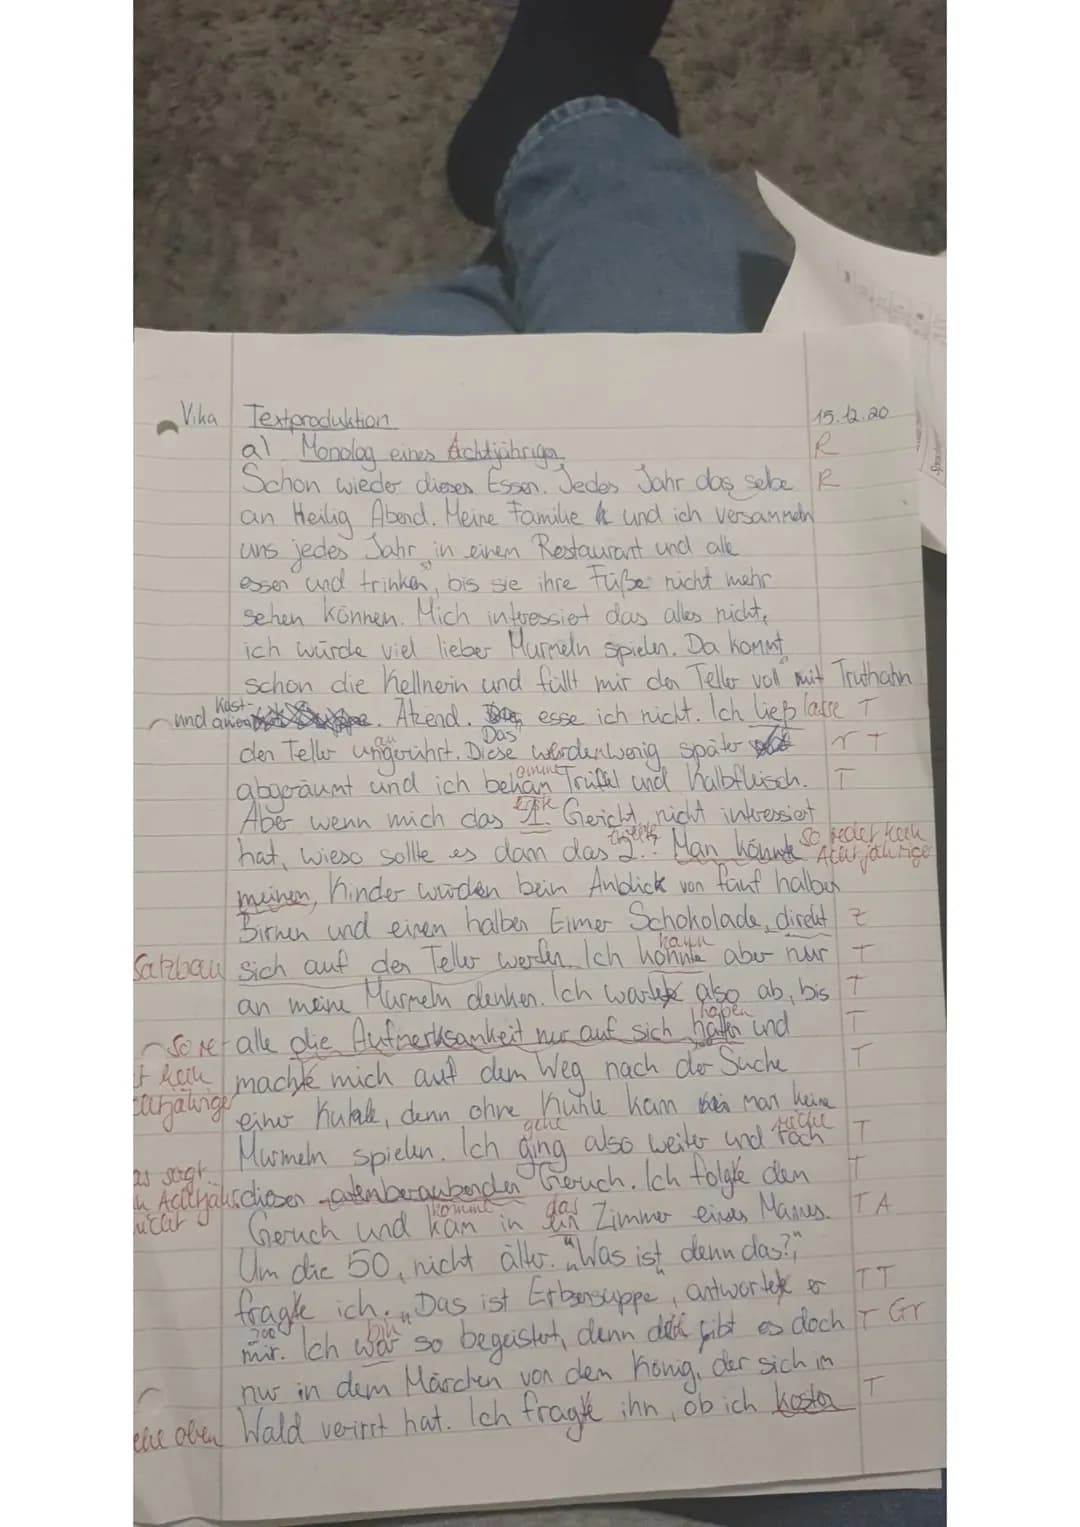 Vika Textproduktion 15.12.20
a) Monolog eines Achtjährigen R
Schon wieder dieses Essen. Jedes Jahr das selbe R
an Heilig Abend. Meine Familie und ich versammeln
uns jedes Jahr in einem Restaurant und alle
essen und trinken, bis sie ihre Füße nicht mehr
sehen können. Mich interessiert das alles nicht,
ich würde viel lieber Murmeln spielen. Da kommt
schon die Kellnerin und füllt mir den Teller voll mit Truthahn
und Ätzend. Das esse ich nicht. Ich ließ lasse T
den Teller ungerührt. Diese werden wenig später r T
abgeräumt und ich bekam Trüffel und Kalbfleisch. T
Aber wenn mich das 1. Gericht nicht interessiert
hat, wieso sollte es dann das 2.? Man könnte So redet kein Achtjähriger
meinen, Kinder würden beim Anblick von fünf halben
Birnen und einen halben Eimer Schokolade, direkt Z
Satzbau sich auf den Teller werfen. Ich konnte kann aber nur T
an meine Murmeln denken. Ich wartete also ab, bis T
alle die Aufmerksamkeit nur auf sich hatten haben und T
machte mich auf dem Weg nach der Suche T
einer Kuhle, denn ohne Kuhle kann man keine
Murmeln spielen. Ich ging gehe also weiter und roch rieche T
diesen atemberaubenden Geruch. Ich folgte den T
Geruch und kam komme in ein das Zimmer eines Mannes. T A
Um die 50, nicht älter. "Was ist denn das?",
fragte ich. "Das ist Erbsensuppe", antwortete er T T
mir. Ich war bin so begeistert, denn die gibt es doch T Gr
nur in dem Märchen von dem König, der sich im
Wald verirrt hat. Ich fragte ihn, ob ich kosten T